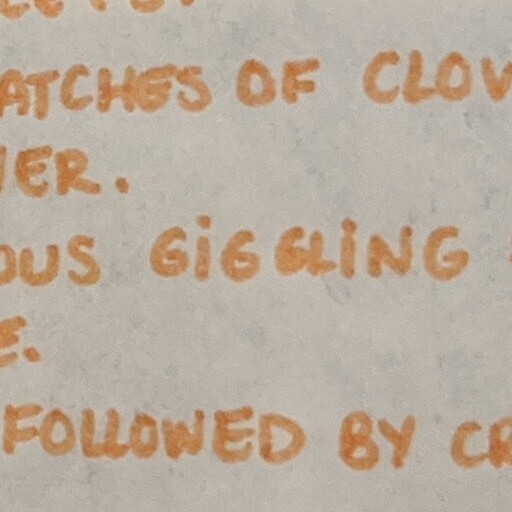 ATCHES OF CLOV
IER.
OUS GiGGLiNG
E.
FOLLOWED BY CR